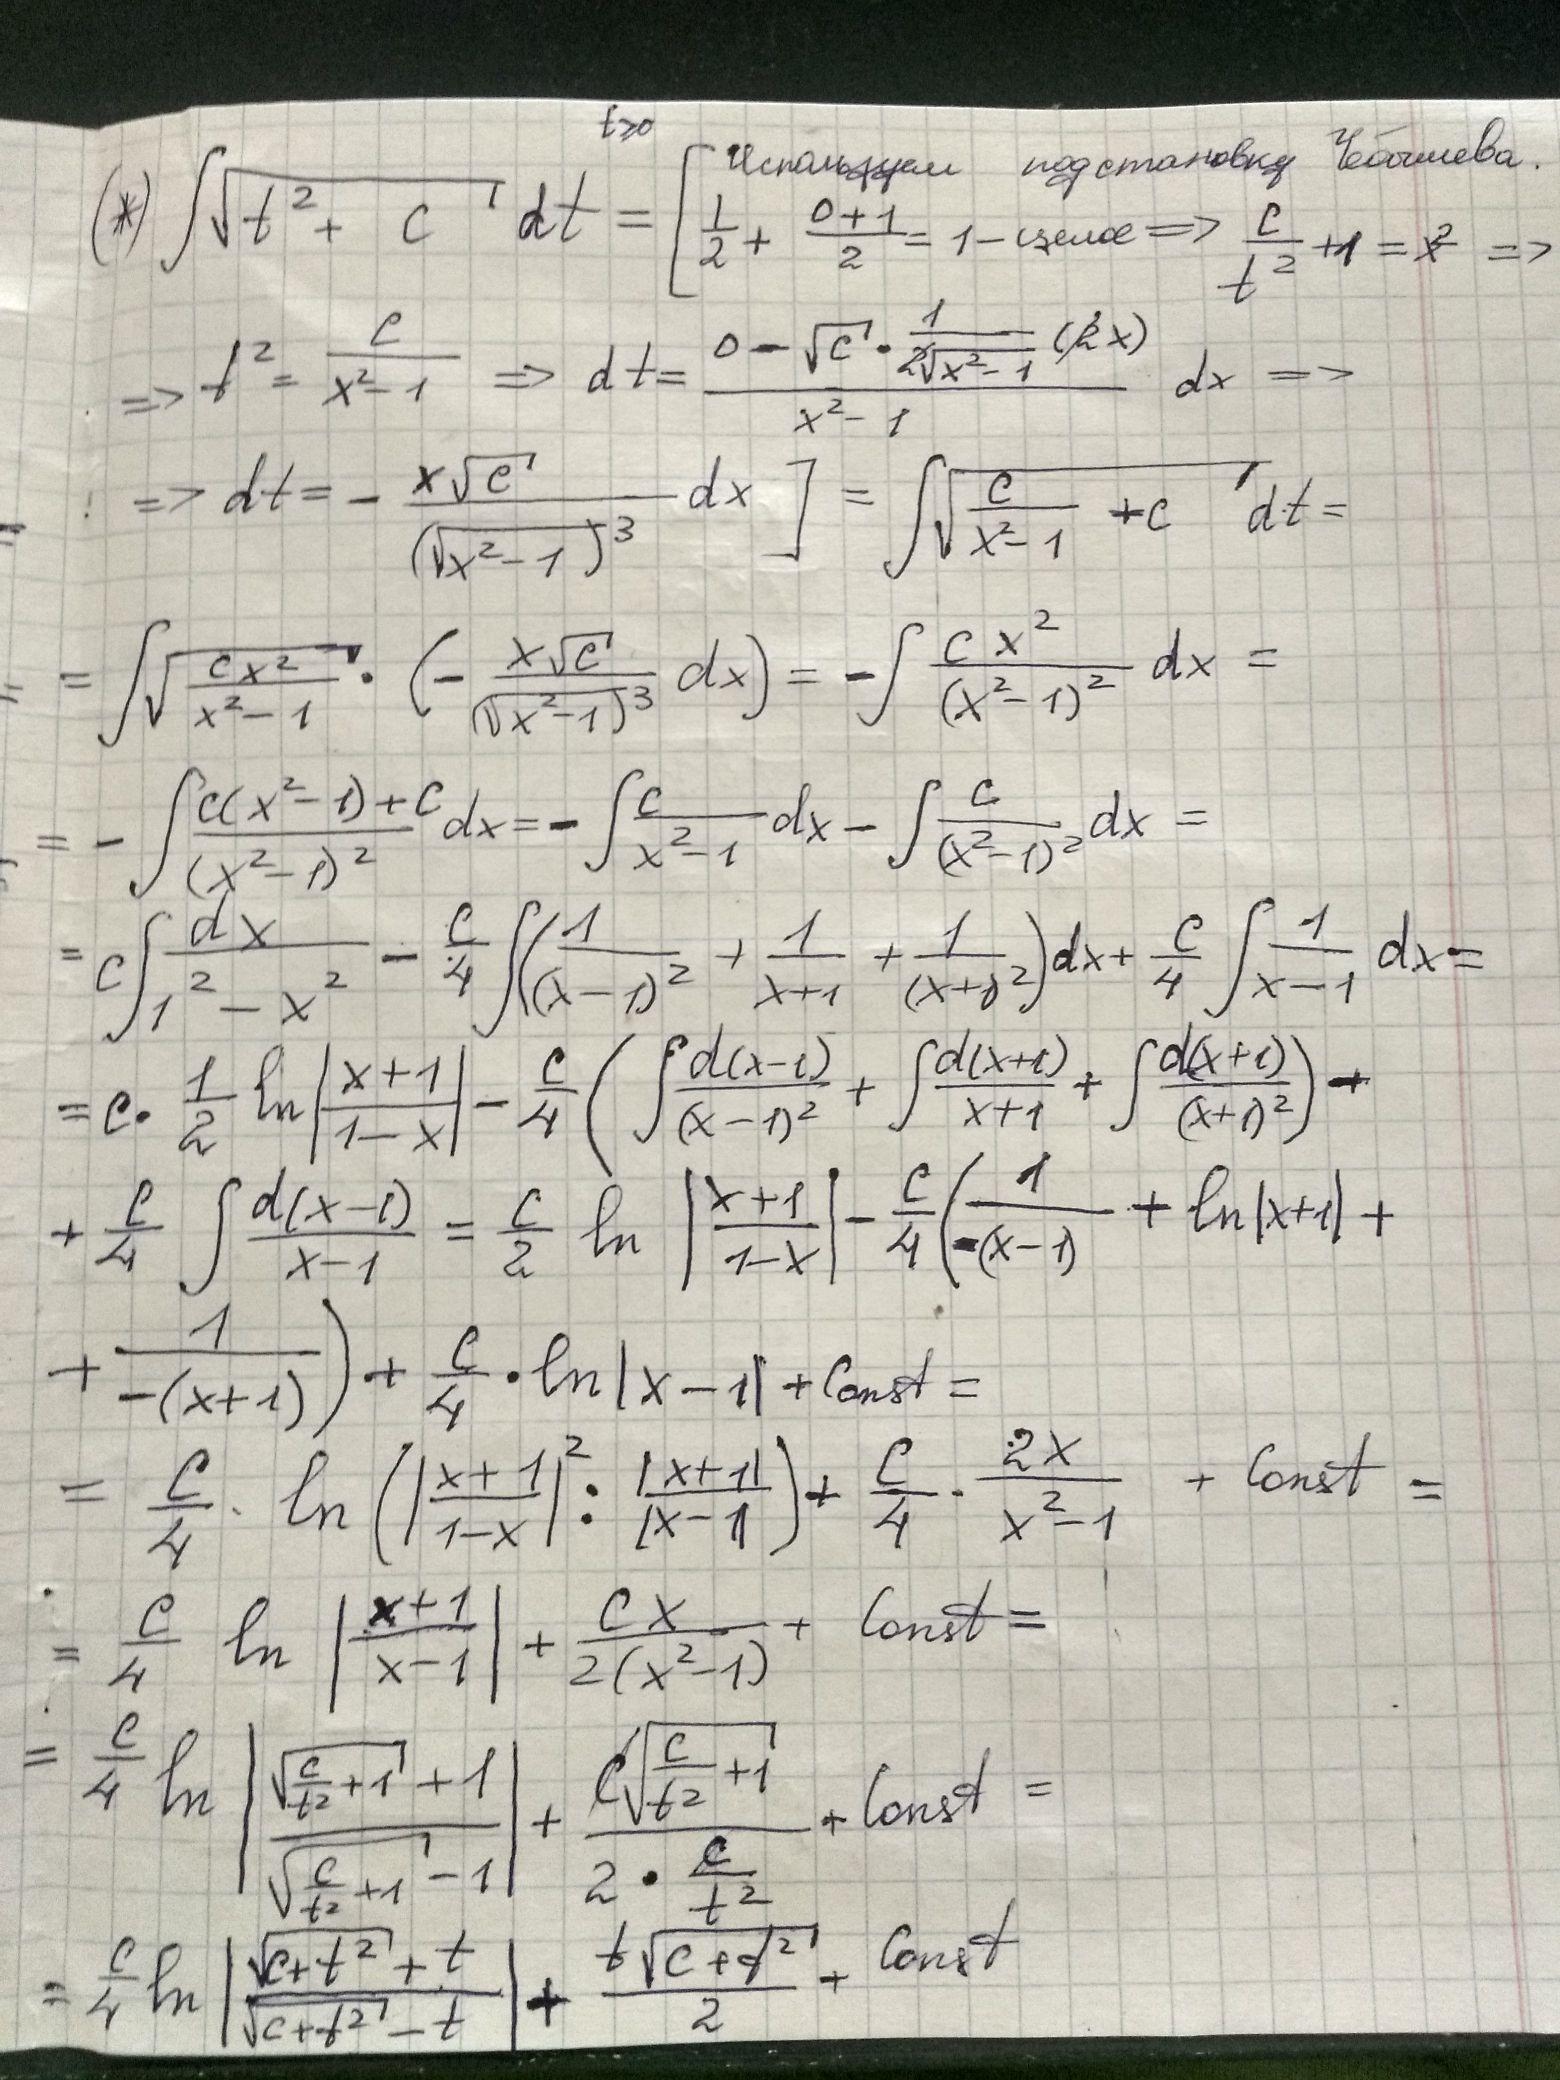 t≥0
(*) ∫√(t² + c) dt = [ Используем подстановку Чебышева.
1/2 + (0+1)/2 = 1 – целое => c/t² + 1 = x² =>
=> t² = c/(x²–1) => dt = (0 – √c · 1/(2√(x²–1)) (2x))/(x²–1) dx =>
=> dt = – x√c/(√(x²–1))³ dx ] = ∫√(c/(x²–1) + c) dt =
= ∫√(cx²/(x²–1)) · (– x√c/(√(x²–1))³ dx) = –∫ cx²/(x²–1)² dx =
= –∫ (c(x²–1)+c)/(x²–1)² dx = –∫ c/(x²–1) dx – ∫ c/(x²–1)² dx =
= c∫ dx/(1²–x²) – c/4 ∫(1/(x–1)² + 1/(x+1) + 1/(x+1)²)dx + c/4 ∫ 1/(x–1) dx =
= c · 1/2 ln|(x+1)/(1–x)| – c/4 (∫ d(x–1)/(x–1)² + ∫ d(x+1)/(x+1) + ∫ d(x+1)/(x+1)²) +
+ c/4 ∫ d(x–1)/(x–1) = c/2 ln |(x+1)/(1–x)| – c/4 (1/(–(x–1)) + ln|x+1| +
+ 1/(–(x+1))) + c/4 · ln|x–1| + Const =
= c/4 · ln(|(x+1)/(1–x)|² : |x+1|/|x–1|) + c/4 · 2x/(x²–1) + Const =
= c/4 ln |(x+1)/(x–1)| + cx/(2(x²–1)) + Const =
= c/4 ln |(√(c/t²+1) + 1)/(√(c/t²+1) – 1)| + c√(c/t²+1)/(2 · c/t²) + Const =
= c/4 ln |(√(c+t²) + t)/(√(c+t²) – t)| + t√(c+t²)/2 + Const